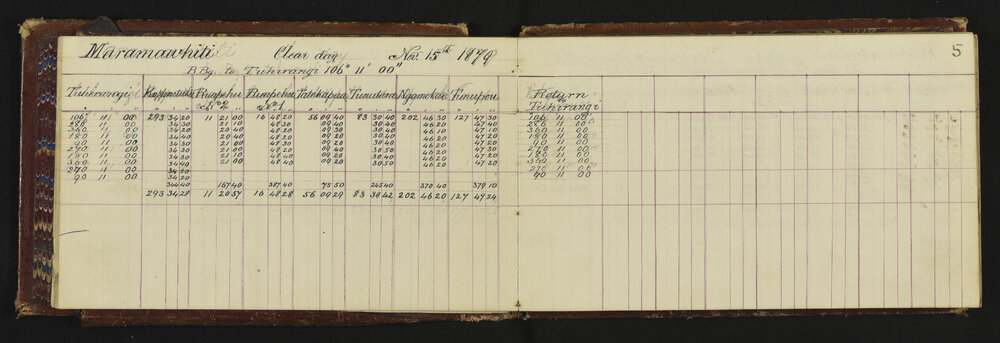 Maramawhiti Clear day Nov. 15th 1879 5
A By. to Tuhirangi 106° 11' 00"
Tuhirangi Ruapehu Ruapehu Return
No 2 No 1 to
Tuhirangi
106 11 00 293 34 20 11 21 00 16 48 20 56 09 40 83 30 40 202 46 30 127 47 30 106 11 00
00 34 30 21 10 48 30 47 40 11 00
360 11 00 34 30 20 40 48 20 09 20 30 40 46 10 47 10 360 11 00
180 11 00 34 30 20 40 48 20 09 20 30 40 46 20 47 20 180 11 00
90 11 00 34 30 21 00 48 30 09 30 46 20 47 20 90 11 00
270 11 00 34 30 21 00 48 30 09 30 46 20 47 30 270 11 00
180 11 00 34 30 21 10 48 40 09 20 30 40 46 20 47 20 180 11 00
360 11 00 34 40 21 00 48 40 09 20 30 50 46 20 47 20 360 11 00
270 11 00 34 20 270 11 00
90 11 00 34 20 90 11 00
344 40 167 40 387 40 75 50 245 40 370 40 379 10
293 34 28 11 20 57 16 48 28 56 09 29 83 30 42 202 46 20 127 47 24